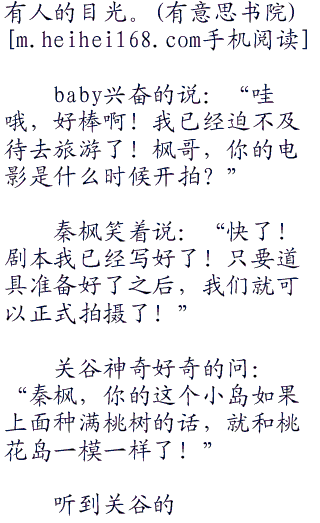 有人的目光。(有意思书院)
[m.heihei168.com手机阅读]
baby兴奋的说：“哇
哦，好棒啊！我已经迫不及
待去旅游了！枫哥，你的电
影是什么时候开拍？”
秦枫笑着说：“快了！
剧本我已经写好了！只要道
具准备好了之后，我们就可
以正式拍摄了！”
关谷神奇好奇的问：
“秦枫，你的这个小岛如果
上面种满桃树的话，就和桃
花岛一模一样了！”
听到关谷的